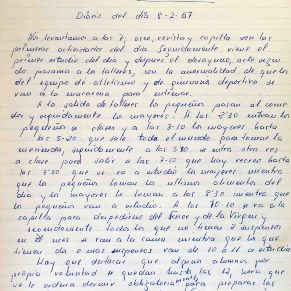 Diario del día 8-2-67
No levantamos a las 7, aseo, revista y capilla son las
primeras actividades del día. Seguidamente viene el
primer estudio del día y después el desayuno, acto segui
do pasamos a los talleres, con la anormalidad de que los
del equipo de atletismo y de gimnasia deportiva se
van a la macarena para entrenar.
A la salida de talleres los pequeños pasan al come
dor y seguidamente los mayores. A las 2'30 entran los
pequeños a clases y a las 3-10 los mayores hasta
las 5-20 que sale todo el mundo para tomar la
merienda, seguidamente a las 5'50 se entra otra vez
a clase para salir a las 7-10 que hay recreo hasta
las 7'30 que se va a estudio los mayores mientras
que los pequeños toman los ultimos alimentos del
día y los mayores lo toman a las 8'30 mientras que
los pequeños van a estudio. A las 10-10 se va a la
capilla para despedirnos del Señor y de la Virgen y
seguidamente todos los que no tienen 2 suspensos
en el mes se van a la cama mientras que los que
tienen dos o mas suspensos van de 10 a 11 a estudio
Hay que destacar que algunos alumnos por
propia voluntad se quedan hasta las 12, hora que
se le ordena dormir obligatoriamente para preparar las